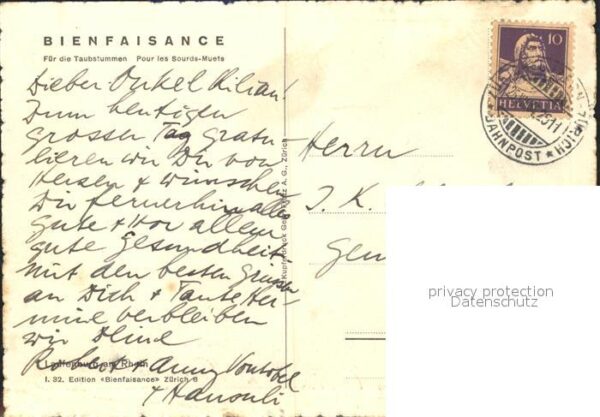 BIENFAISANCE
Für die Taubstummen Pour les Sourds-Muets
Lieber Onkel Kilian!
Zum heutigen
grossen Tag gratu-
lieren wir Dir von
Herzen + wünschen
Dir fernerhin alles
gute + vor allem
gute Gesundheit
mit den besten Grüssen
an Dich + Tante Her-
mine verbleiben
wir Deine
Robert + Anny Vontobel
+ Hansuli
Laufenburg am Rhein
I. 32. Edition «Bienfaisance» Zürich 6
Kupferdruck A. G., Zürich
Herrn
J. K.
10
HELVETIA
BAHNPOST
ZÜRICH
privacy protection
Datenschutz